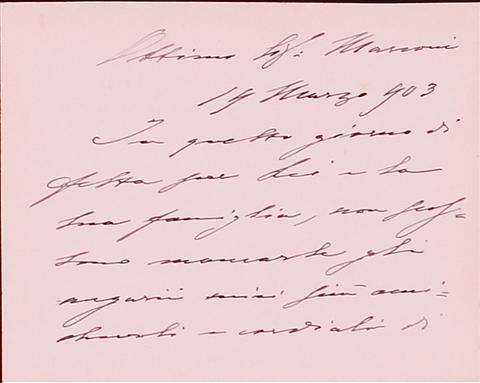 Ottimo Sig: Marconi
19 Marzo 903
In questo giorno di
festa per Lei e la
sua famiglia, non pos=
sono mancarle gli
augurii miei più ami=
chevoli e cordiali di